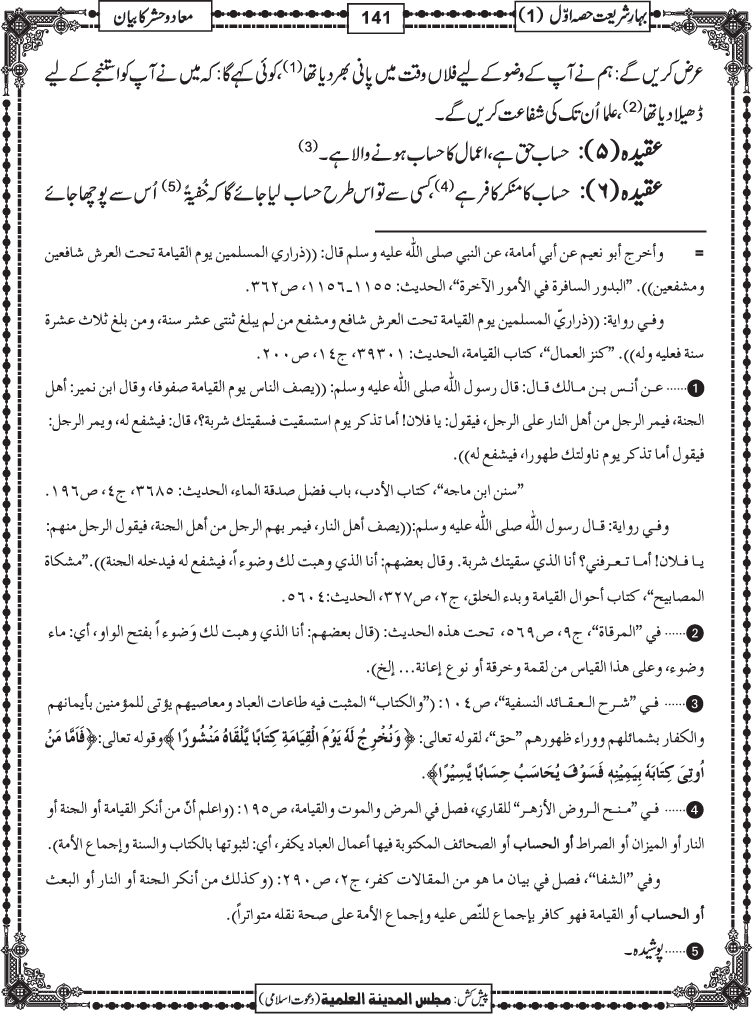 بہارِ شریعت حصہ اوّل (1)
141
معاد و حشر کا بیان
عرض کریں گے: ہم نے آپ کے وضو کے لیے فلاں وقت میں پانی بھر دیا تھا(1)، کوئی کہے گا: کہ میں نے آپ کو استنجے کے لیے
ڈھیلا دیا تھا(2)، علما اُن تک کی شفاعت کریں گے۔
عقیدہ (۵): حساب حق ہے، اعمال کا حساب ہونے والا ہے۔(3)
عقیدہ (۶): حساب کا منکر کافر ہے(4)، کسی سے تو اس طرح حساب لیا جائے گا کہ خُفیۃً(5) اُس سے پوچھا جائے
= وأخرج أبو نعيم عن أبي أمامة، عن النبي صلى الله عليه وسلم قال: ((ذراري المسلمين يوم القيامة تحت العرش شافعين
ومشفعين)). ”البدور السافرة في الأمور الآخرة“، الحديث: ١١٥٥-١١٥٦، ص٣٦٢.
وفي رواية: ((ذراريّ المسلمين يوم القيامة تحت العرش شافع ومشفع من لم يبلغ ثنتى عشر سنة، ومن بلغ ثلاث عشرة
سنة فعليه وله)). ”كنز العمال“، كتاب القيامة، الحديث: ٣٩٣٠١، ج١٤، ص٢٠٠.
1 ...... عن أنس بن مالك قال: قال رسول الله صلى الله عليه وسلم: ((يصف الناس يوم القيامة صفوفا، وقال ابن نمير: أهل
الجنة، فيمر الرجل من أهل النار على الرجل، فيقول: يا فلان! أما تذكر يوم استسقيت فسقيتك شربة؟، قال: فيشفع له، ويمر الرجل:
فيقول أما تذكر يوم ناولتك طهورا، فيشفع له)).
”سنن ابن ماجه“، كتاب الأدب، باب فضل صدقة الماء، الحديث: ٣٦٨٥، ج٤، ص١٩٦.
وفي رواية: قال رسول الله صلى الله عليه وسلم:((يصف أهل النار، فيمر بهم الرجل من أهل الجنة، فيقول الرجل منهم:
يا فلان! أما تعرفني؟ أنا الذي سقيتك شربة. وقال بعضهم: أنا الذي وهبت لك وضوءاً، فيشفع له فيدخله الجنة)).”مشكاة
المصابيح“، كتاب أحوال القيامة وبدء الخلق، ج٢، ص٣٢٧، الحديث:٥٦٠٤.
2 ...... في ”المرقاة“، ج٩، ص٥٦٩، تحت هذه الحديث: (قال بعضهم: أنا الذي وهبت لك وَضوءاً بفتح الواو، أي: ماء
وضوء، وعلى هذا القياس من لقمة وخرقة أو نوع إعانة... إلخ).
3 ...... في ”شرح العقائد النسفية“، ص١٠٤: (”والكتاب“ المثبت فيه طاعات العباد ومعاصيهم يؤتى للمؤمنين بأيمانهم
والكفار بشمائلهم ووراء ظهورهم ”حق“، لقوله تعالى: ﴿ وَنُخْرِجُ لَهٗ یَوْمَ الْقِیَامَةِ كِتَابًا یَّلْقَاهُ مَنْشُورًا ﴾وقوله تعالى:﴿فَاَمَّا مَنْ
اُوتِیَ كِتَابَهٗ بِیَمِیْنِهٖ فَسَوْفَ یُحَاسَبُ حِسَابًا یَّسِیْرًا﴾.
4 ...... في ”منح الروض الأزهر“ للقاري، فصل في المرض والموت والقيامة، ص١٩٥: (واعلم أنّ من أنكر القيامة أو الجنة أو
النار أو الميزان أو الصراط أو الحساب أو الصحائف المكتوبة فيها أعمال العباد يكفر، أي: لثبوتها بالكتاب والسنة وإجماع الأمة).
وفي ”الشفا“، فصل في بيان ما هو من المقالات كفر، ج٢، ص٢٩٠: (وكذلك من أنكر الجنة أو النار أو البعث
أو الحساب أو القيامة فهو كافر بإجماع للنّص عليه وإجماع الأمة على صحة نقله متواتراً).
5 ...... پوشیدہ۔
پیش کش: مجلس المدينة العلمية (دعوت اسلامی)